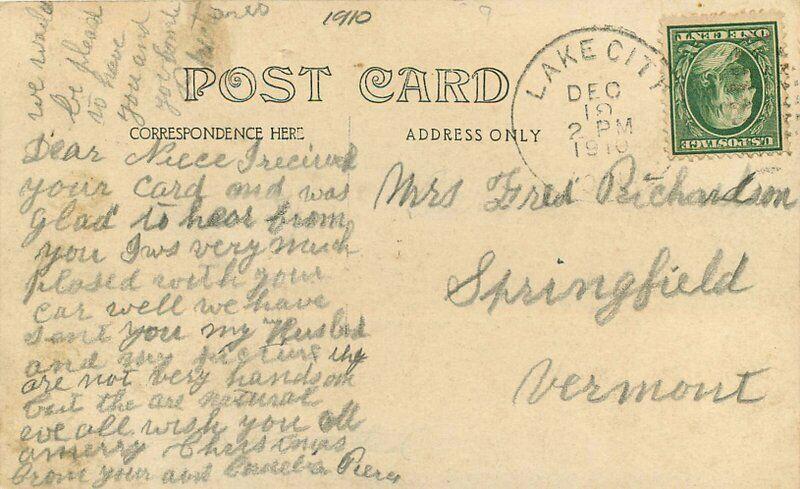 1910
we would
be plesd
to have
you and
your
POST CARD
CORRESPONDENCE HERE
ADDRESS ONLY
LAKE CITY
DEC
19
2 PM
1910
ONE CENT
U.S. POSTAGE
Dear Niece I recived
your card and was
glad to hear from
you I ws very much
plased with your
car well we have
sent you my Husbed
and my picture thy
are not very handsom
but the are natural
we all wish you all
a merry Christmas
from your ant Pierce
Mrs Fred Richardson
Springfield
Vermont